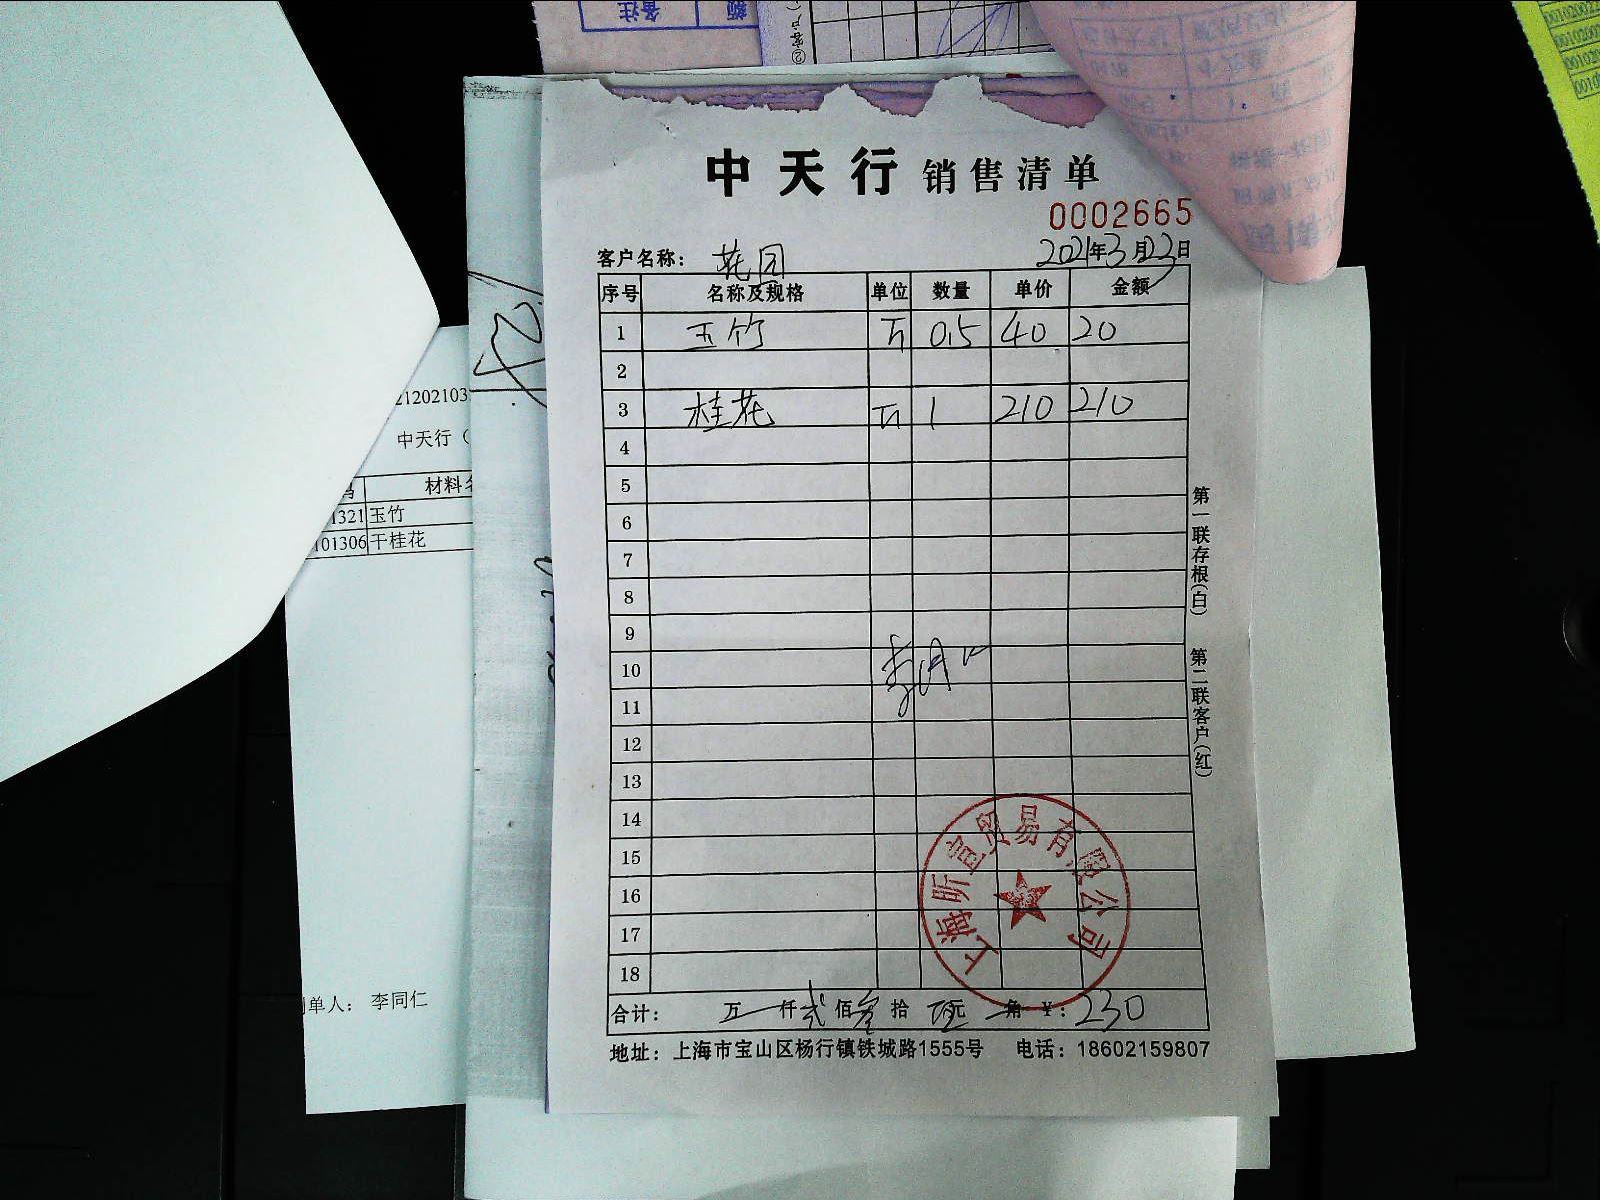 备注
额
②客户(
中天行 销售清单
0002665
客户名称: 花园 2021年3月23日
序号 名称及规格 单位 数量 单价 金额
1 玉竹 斤 0.5 40 20
2
3 桂花 斤 1 210 210
4
5
6
7
8
9
10
11
12
13
14
15
16
17
18
合计: 万 仟 贰 佰 叁 拾 元 角 ¥: 230
地址: 上海市宝山区杨行镇铁城路1555号 电话: 18602159807
第一联存根(白) 第二联客户(红)
上海昕宣贸易有限公司
21202103
中天行(
材料名
1321 玉竹
101306 干桂花
制单人: 李同仁